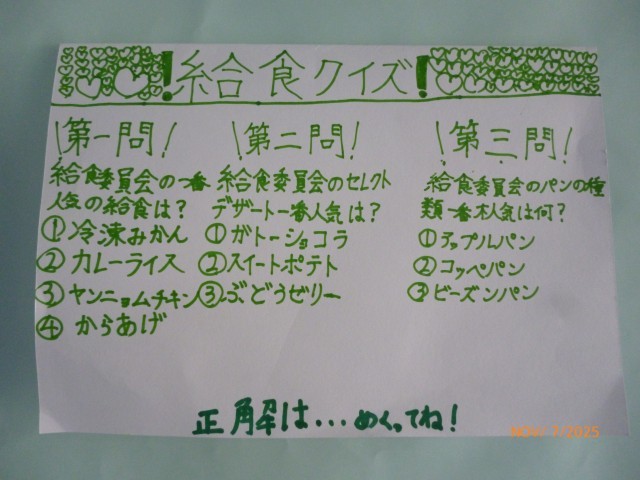 ！給食クイズ！
！第一問！
給食委員会の一番
人気の給食は？
①冷凍みかん
②カレーライス
③ヤンニョムチキン
④からあげ
！第二問！
給食委員会のセレクト
デザート一番人気は？
①ガトーショコラ
②スイートポテト
③ぶどうゼリー
！第三問！
給食委員会のパンの種
類一番人気は何？
①アップルパン
②コッペパン
③ビーズンパン
正解は...めくってね！
NOV/7/2025